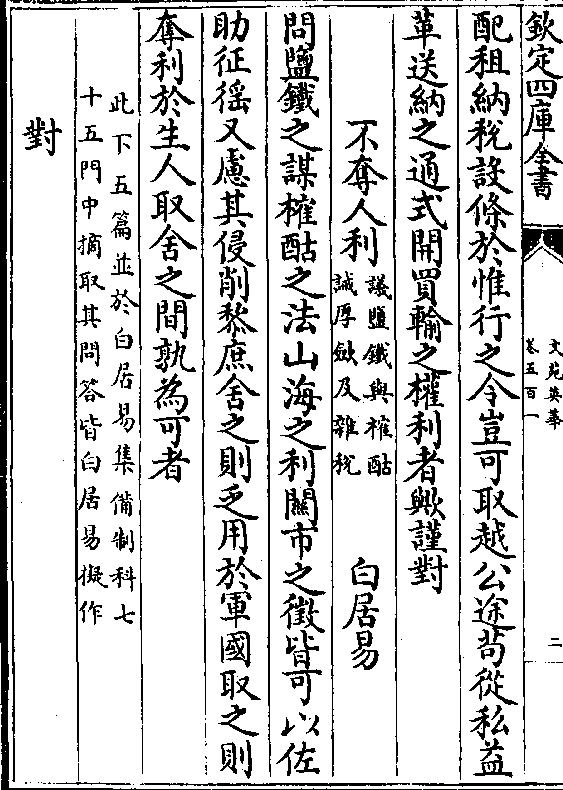 欽定四庫全書
文苑英華
卷五百一
二
配租納稅設條於惟行之令豈可取越公途茍從私益
革送納之通式開買輸之權利者歟謹對
不奪人利
議鹽鐵與榷酤
誡厚斂及雜稅
白居易
問鹽鐵之謀榷酤之法山海之利關市之徵皆可以佐
助征徭又慮其侵削黎庶舍之則乏用於軍國取之則
奪利於生人取舍之間孰為可者
此下五篇並於白居易集備制科七
十五門中摘取其問答皆白居易擬作
對